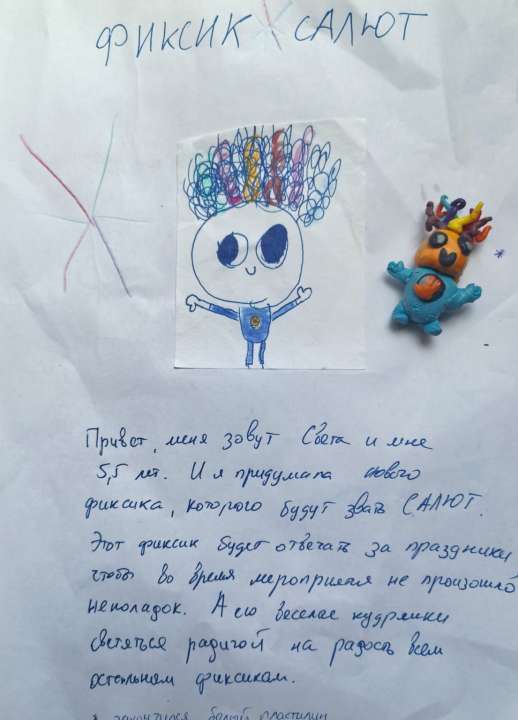 ФИКСИК САЛЮТ
Привет, меня зовут Света и мне
5,5 лет. И я придумала нового
фиксика, которого будут звать САЛЮТ.
Этот фиксик будет отвечать за праздники
чтобы во время мероприятия не произошло
неполадок. А его веселые кудряшки
светяться радугой на радость всем
остальным фиксикам.
* закончился белый пластилин